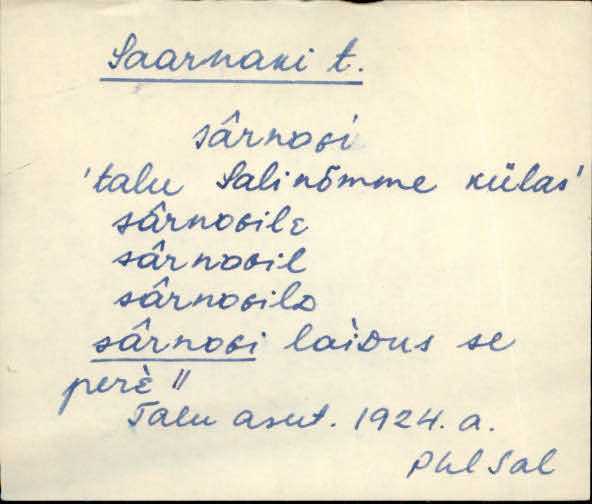 Saarnaki t.
sârnoɢi
'talu Salinõmme külas'
sârnoɢilɛ
sârnoɢil
sârnoɢilᴅ
sârnoɢi laìᴅus se
perè ||
Talu asut. 1924. a.
Phl Sal